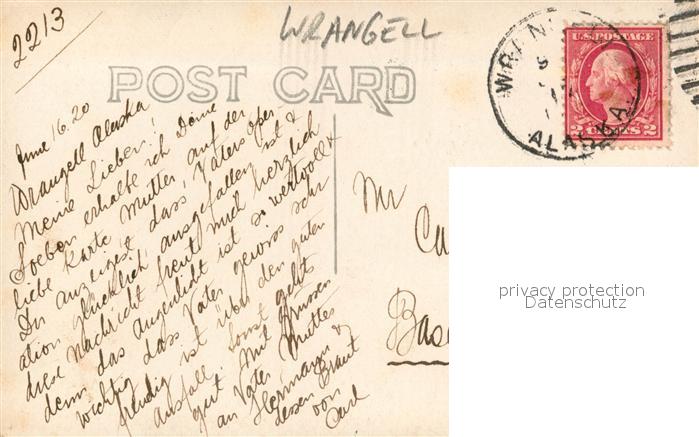 2213
WRANGELL
POST CARD
U.S. POSTAGE
2 CENTS 2
WRAN
ALASKA
June 16. 20
Wrangell Alaska
Meine Lieben!
Soeben erhalte ich Deine
liebe Karte Mutter auf der
Du anzeigest dass, Vaters Oper-
ation glücklich ausgefallen ist &
diese Nachricht freut mich herzlich
denn das augenlicht ist so wertvoll &
wichtig dass Vater gewiss sehr
freudig ist über den guten
Ausfall. Sonst gehts
gut. Mit Grüssen
an Vater Mutter
Hermann &
dessen Braut
von
Carl
Mr
Ca
Base
privacy protection
Datenschutz